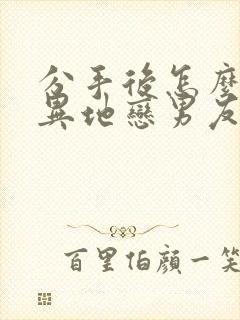 分手後怎麼
異地戀男友
百里伯顏一笑